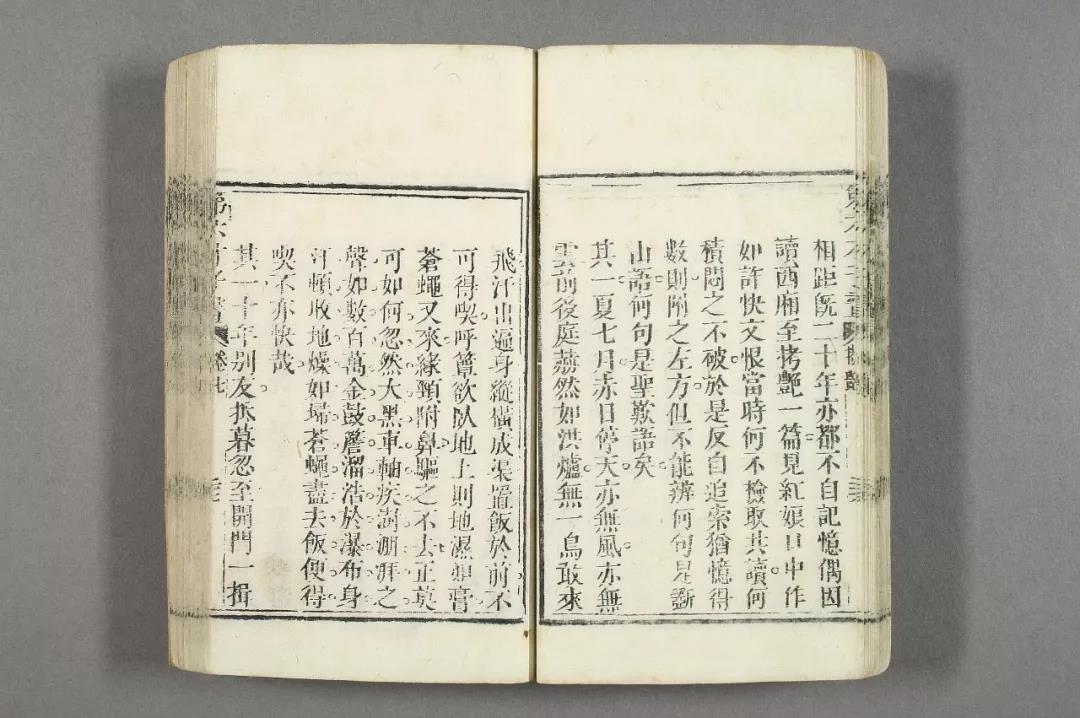 第六才子書 拷艷
相距既二十年亦都不自記憶偶因
讀西廂至拷艷一篇見紅娘口中作
如許快文恨當時何不檢取共讀何
積悶之不破於是反自追索猶憶得
數則附之左方但不能辨何句是斲
山語何句是聖歎語矣
其一夏七月赤日停天亦無風亦無
雲前後庭赫然如洪爐無一鳥敢來
飛汗出遍身縱橫成渠置飯於前不
可得喫呼簟欲臥地上則地濕如膏
蒼蠅又來緣頸附鼻驅之不去正莫
可如何忽然大黑車軸疾澍澎湃之
聲如數百萬金鼓簷溜浩於瀑布身
汗頓收地燥如掃蒼蠅盡去飯便得
喫不亦快哉
其一十年別友抵暮忽至開門一揖
第六才子書 卷七